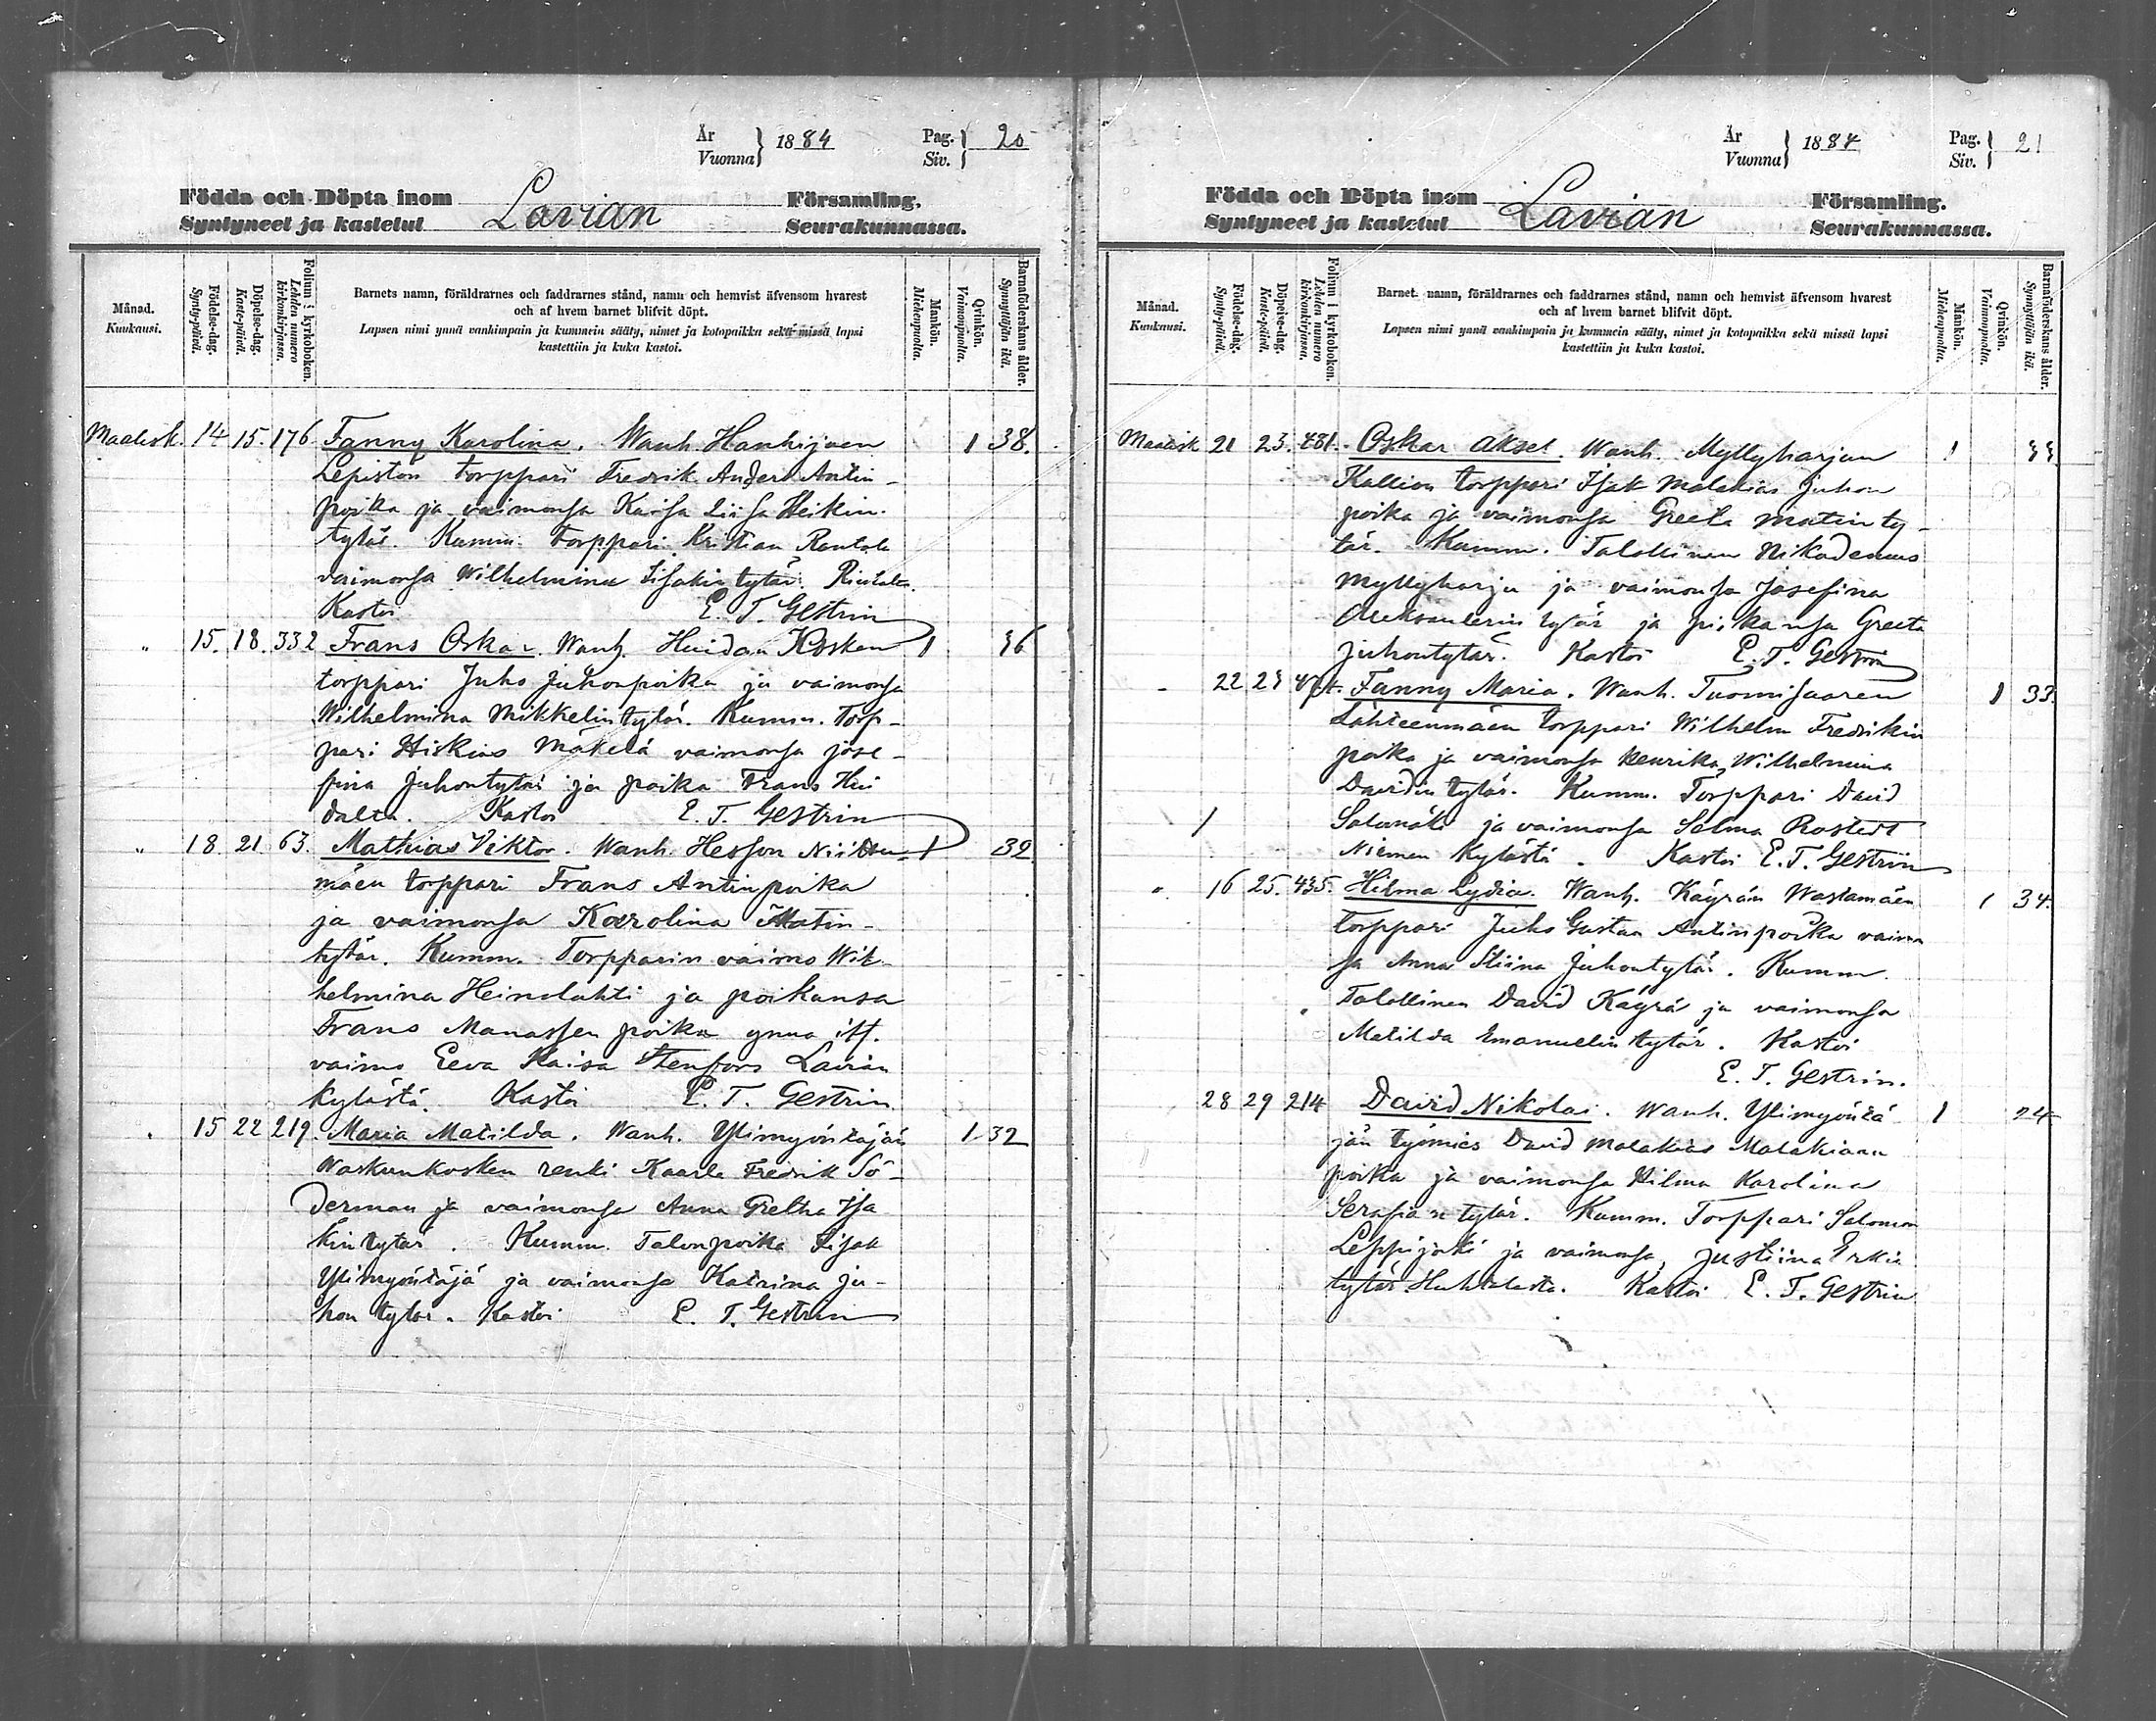 År
Vuonna } 1884 Pag.
Siv. } 20
Födda och Döpta inom
Syntyneet ja kastetut Lavian Församling.
Seurakunnassa.
Månad.
Kuukausi.
Födelse-dag.
Synty-päivä.
Döpelse-dag.
Kaste-päivä.
Folium i kyrkoboken.
Lehden numero kirkonkirjassa.
Barnets namn, föräldrarnes och faddrarnes stånd, namn och hemvist äfvensom hvarest
och af hvem barnet blifvit döpt.
Lapsen nimi ynnä vanhimpain ja kummein sääty, nimet ja kotopaikka sekä missä lapsi
kastettiin ja kuka kastoi.
Mankön.
Miehenpuolta.
Qvinkön.
Vaimonpuolta.
Barnaföderskans ålder.
Synnyttäjän ikä.
Maalisk. 14 15. 176. Fanny Karolina. Wanh. Hanhijoen 1 38.
Lepistön torppari Fredrik Anders Antin-
poika ja vaimonsa Kaisa Liisa Heikin-
tytär. Kumm. torppari Kristian Rantala
vaimonsa Wilhelmina Iisakin tytär.
Kastoi E. T. Gestrin
" 15. 18. 332 Frans Oskar. Wanh. Huidan Kosken 1 36
torppari Juho Juhonpoika ja vaimonsa
Wilhelmina Mikkelintytär. Kumm. Torp-
pari Hiskias Mäkelä vaimonsa Jose-
fina Juhontytär ja poika Frans Hui
dalta. Kastoi E. T. Gestrin
" 18. 21. 63. Mathias Viktor. Wanh. Hesson 1 32
mäen torppari Frans Antinpoika
ja vaimonsa Karolina Matin-
tytär. Kumm. Torpparin vaimo Wil-
helmina Heinolahti ja poikansa
Frans Manassen poika ynnä itt.
vaimo Eeva Kaisa Stenfors Lavian
kylästä. Kastoi E. T. Gestrin
" 15 22 219. Maria Matilda. Wanh. Ylimyöntäjän 1 32
Waskunkosken renki Kaarle Fredrik Sö-
derman ja vaimonsa Anna Gretha Isa
kintytär. Kumm. Talonpoika Iisak
Ylimyöntäjä ja vaimonsa Katrina Ju-
hon tytär. Kastoi E. T. Gestrin
År
Vuonna } 1884 Pag.
Siv. } 21
Födda och Döpta inom
Syntyneet ja kastetut Lavian Församling.
Seurakunnassa.
Månad.
Kuukausi.
Födelse-dag.
Synty-päivä.
Döpelse-dag.
Kaste-päivä.
Folium i kyrkoboken.
Lehden numero kirkonkirjassa.
Barnet namn, föräldrarnes och faddrarnes stånd, namn och hemvist äfvensom hvarest
och af hvem barnet blifvit döpt.
Lapsen nimi ynnä vanhimpain ja kummein sääty, nimet ja kotopaikka sekä missä lapsi
kastettiin ja kuka kastoi.
Mankön.
Miehenpuolta.
Qvinkön.
Vaimonpuolta.
Barnaföderskans ålder.
Synnyttäjän ikä.
Maalisk 21 23. 481. Oskar Aksel. Wanh. Myllyharjun 1 33
Kallion torppari Isak Malakias Juhon
poika ja vaimonsa Greeta Matin ty-
tär. Kumm. Talollinen Nikodemus
Myllyharju ja vaimonsa Josefina
Aleksanterin tytär ja Greeta
Juhontytär. Kastoi E. T. Gestrin
" 22 23 Fanny Maria. Wanh. Tuomisaaren 1 33.
Lähteenmäen torppari Wilhelm Fredrikin
poika ja vaimonsa Henrika Wilhelmina
Davidin tytär. Kumm. Torppari David
Salomäki ja vaimonsa Selma Rostedt
Niemen kylästä. Kastoi E. T. Gestrin
" 16 25. 435. Hilma Lydia. Wanh. Käyrän Wastamäen 1 34.
torppari Juho Gustaa Antinpoika vaimon
sa Anna Stiina Juhontytär. Kumm.
Talollinen David Käyrä ja vaimonsa
Matilda Emanuelin tytär. Kastoi
E. T. Gestrin.
28 29 214 David Nikolai. Wanh. Ylimyöntä 1 24
jän työmies David Malakias Malakiaan
poika ja vaimonsa Hilma Karolina
Serafian tytär. Kumm. Torppari Salomon
Leppijoki ja vaimonsa Justiina Erkin
tytär Huhtalasta. Kastoi E. T. Gestrin